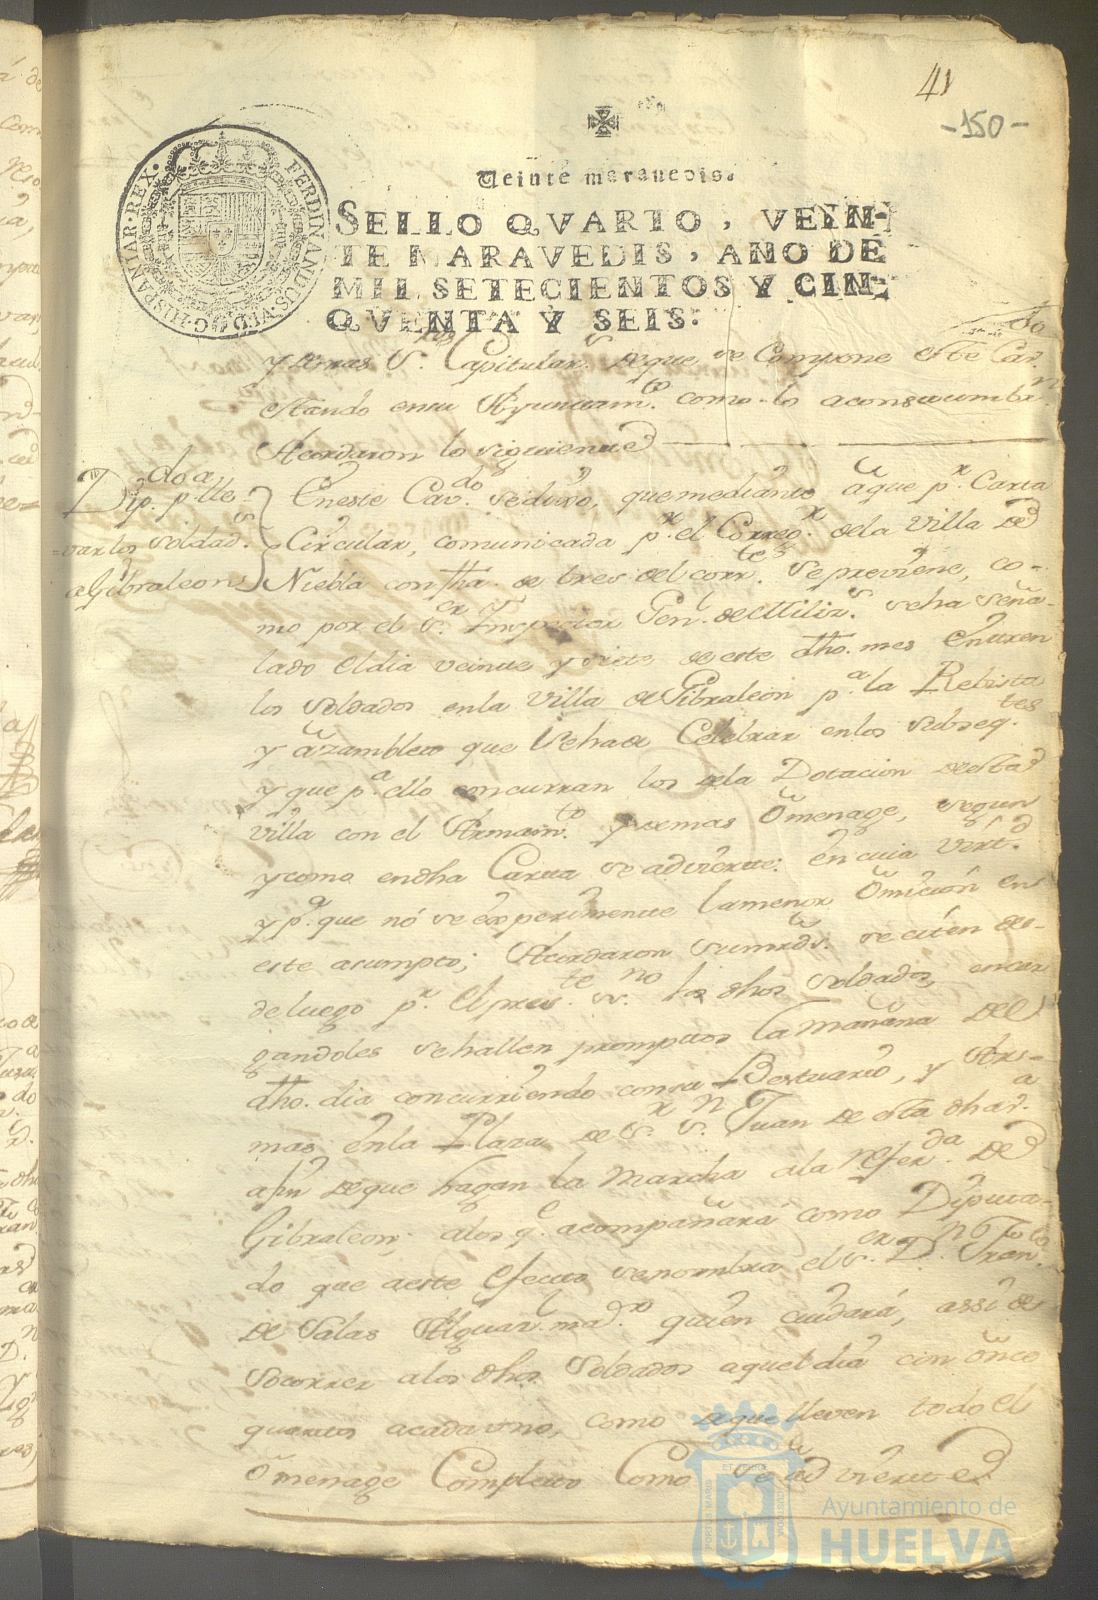 41
-150-
Veinte maravedis.
SELLO QVARTO, VEIN-
TE MARAVEDIS, AÑO DE
MIL SETECIENTOS Y CIN-
QVENTA Y SEIS.
FERDINANDUS VI D G HISPANIAR REX
y demas Sres. Capitulares de que se Compone este Cavdo
estando en su Ayuntamto. como lo aconstumbran
Acordaron lo siguiente
Dipdo. pa. lle-
var los Soldads.
a Gibraleon
En este Cavdo. se dixo, que mediante a que pr. Carta
Circular, comunicada pr. el Corregr. de la Villa de
Niebla con fha. de tres del corrte. se previene, co-
mo por el Sr. Inspector Genl. de Milizs. se ha seña-
lado el dia veinte y siete de este dho. mes entren
los Soldados en la Villa de Gibraleon pa. la Rebista
y asamblea que se ha de Celebrar en los subseqtes.
y que pa. ello concurran los de la Dotacion de esta
villa con el Armamto. y demas omenage, segun
y como en dha Carta se advierte: en cuia virtd.
y pa. que no se experimente la menor omicion en
este asumpto; Acordaron sus mrds. se citen des-
de luego pr. el preste. sno. los dhos soldados, encar
gandoles se hallen promptos la mañana del
dho. dia concurriendo con su Bestuario, y Ar-
mas en la Plaza de Sr. Sn. Juan de esta dha va.
afin de que hagan la marcha a la referda. de
Gibraleon; a los qe. acompañará como Diputa-
do que a este efecto se nombra el Sr. Dn. Franco.
de Salas Alguacl. mayr. quien cuidará, assi de
socorrer a los dhos Soldados aquel dia con onse
quartos a cada uno, como de que lleven todo el
omenage Completo Como se advierte
Ayuntamiento de
HUELVA